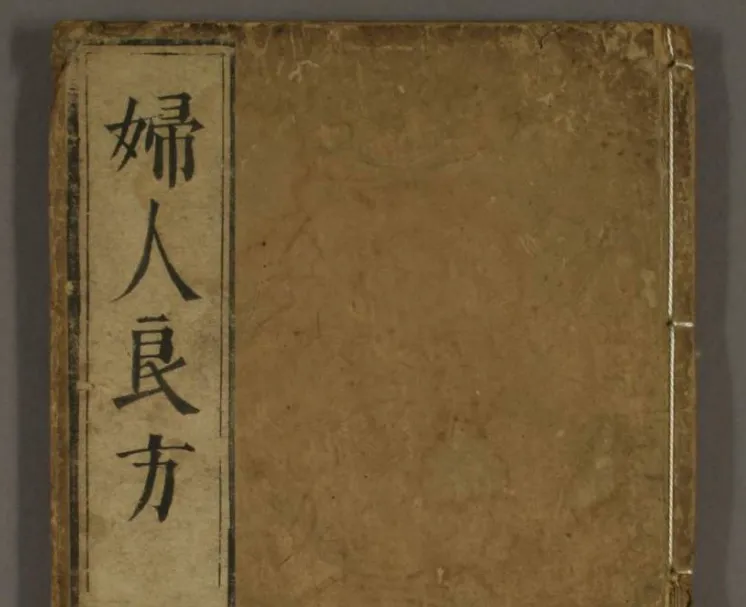 婦人良方